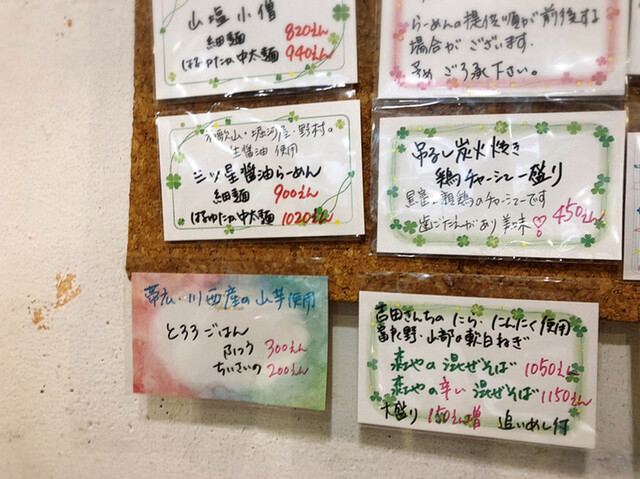 山塩小僧 820えん
細麺
はるゆたか中太麺 940えん
らーめんの提供順が前後する
場合が ございます.
予め ご了承下さい。
和歌山・堀河屋・野村の
生醤油 使用
三ツ星醤油らーめん
細麺 900えん
はるゆたか中太麺 1020えん
吊るし炭火焼き
鶏チャーシュー一盛り
親鶏のチャーシューです
歯ごたえがあり美味 450えん
帯広・川西産の山芋使用
とろろごはん
ふつう 300えん
ちいさいの 200えん
吉田さんちの にら・にんにく使用
富良野・山部の軟白ねぎ
の混ぜそば 1050えん
の辛い混ぜそば 1150えん
大盛り 150えん増 追いめし付